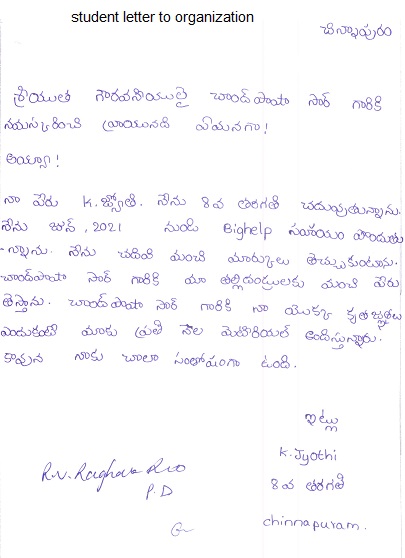 student letter to organization
చిన్నాపురం
శ్రీయుత గౌరవనీయులై చాంద్ పాషా సార్ గారికి
నమస్కరించి వ్రాయునది ఏమనగా!
అయ్యా!
నా పేరు K. జ్యోతి. నేను 8వ తరగతి చదువుతున్నాను.
నేను జూన్, 2021 నుండి Bighelp సహాయం పొందుతు
-న్నాను. నేను చదివి మంచి మార్కులు తెచ్చుకుంటాను.
చాంద్ పాషా సార్ గారికి మా తల్లిదండ్రులకు మంచి పేరు
తెస్తాను. చాంద్ పాషా సార్ గారికి నా యొక్క కృతజ్ఞతలు
ఎందుకంటే మాకు ప్రతి నెల మెటీరియల్ అందిస్తున్నారు.
కావున నాకు చాలా సంతోషంగా ఉంది.
ఇట్లు
K. Jyothi
8వ తరగతి
chinnapuram.
R.V. Raghava Rao
P.D